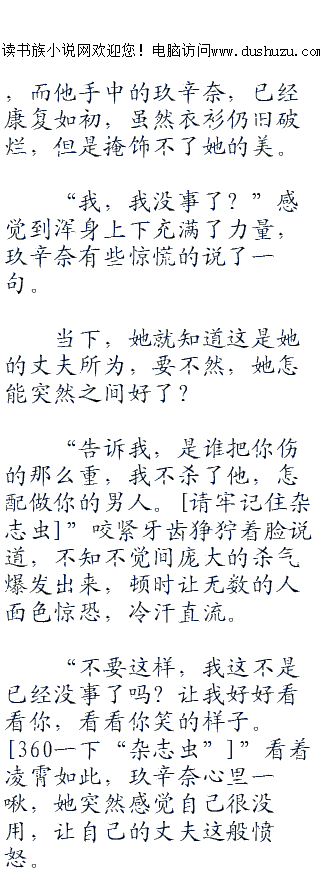 读书族小说网欢迎您！电脑访问www.dushuzu.com
，而他手中的玖辛奈，已经
康复如初，虽然衣衫仍旧破
烂，但是掩饰不了她的美。
“我，我没事了？”感
觉到浑身上下充满了力量，
玖辛奈有些惊慌的说了一
句。
当下，她就知道这是她
的丈夫所为，要不然，她怎
能突然之间好了？
“告诉我，是谁把你伤
的那么重，我不杀了他，怎
配做你的男人。[请牢记住杂
志虫]”咬紧牙齿狰狞着脸说
道，不知不觉间庞大的杀气
爆发出来，顿时让无数的人
面色惊恐，冷汗直流。
“不要这样，我这不是
已经没事了吗？让我好好看
看你，看看你笑的样子。
[360一下“杂志虫”]”看着
凌霄如此，玖辛奈心里一
啾，她突然感觉自己很没
用，让自己的丈夫这般愤
怒。